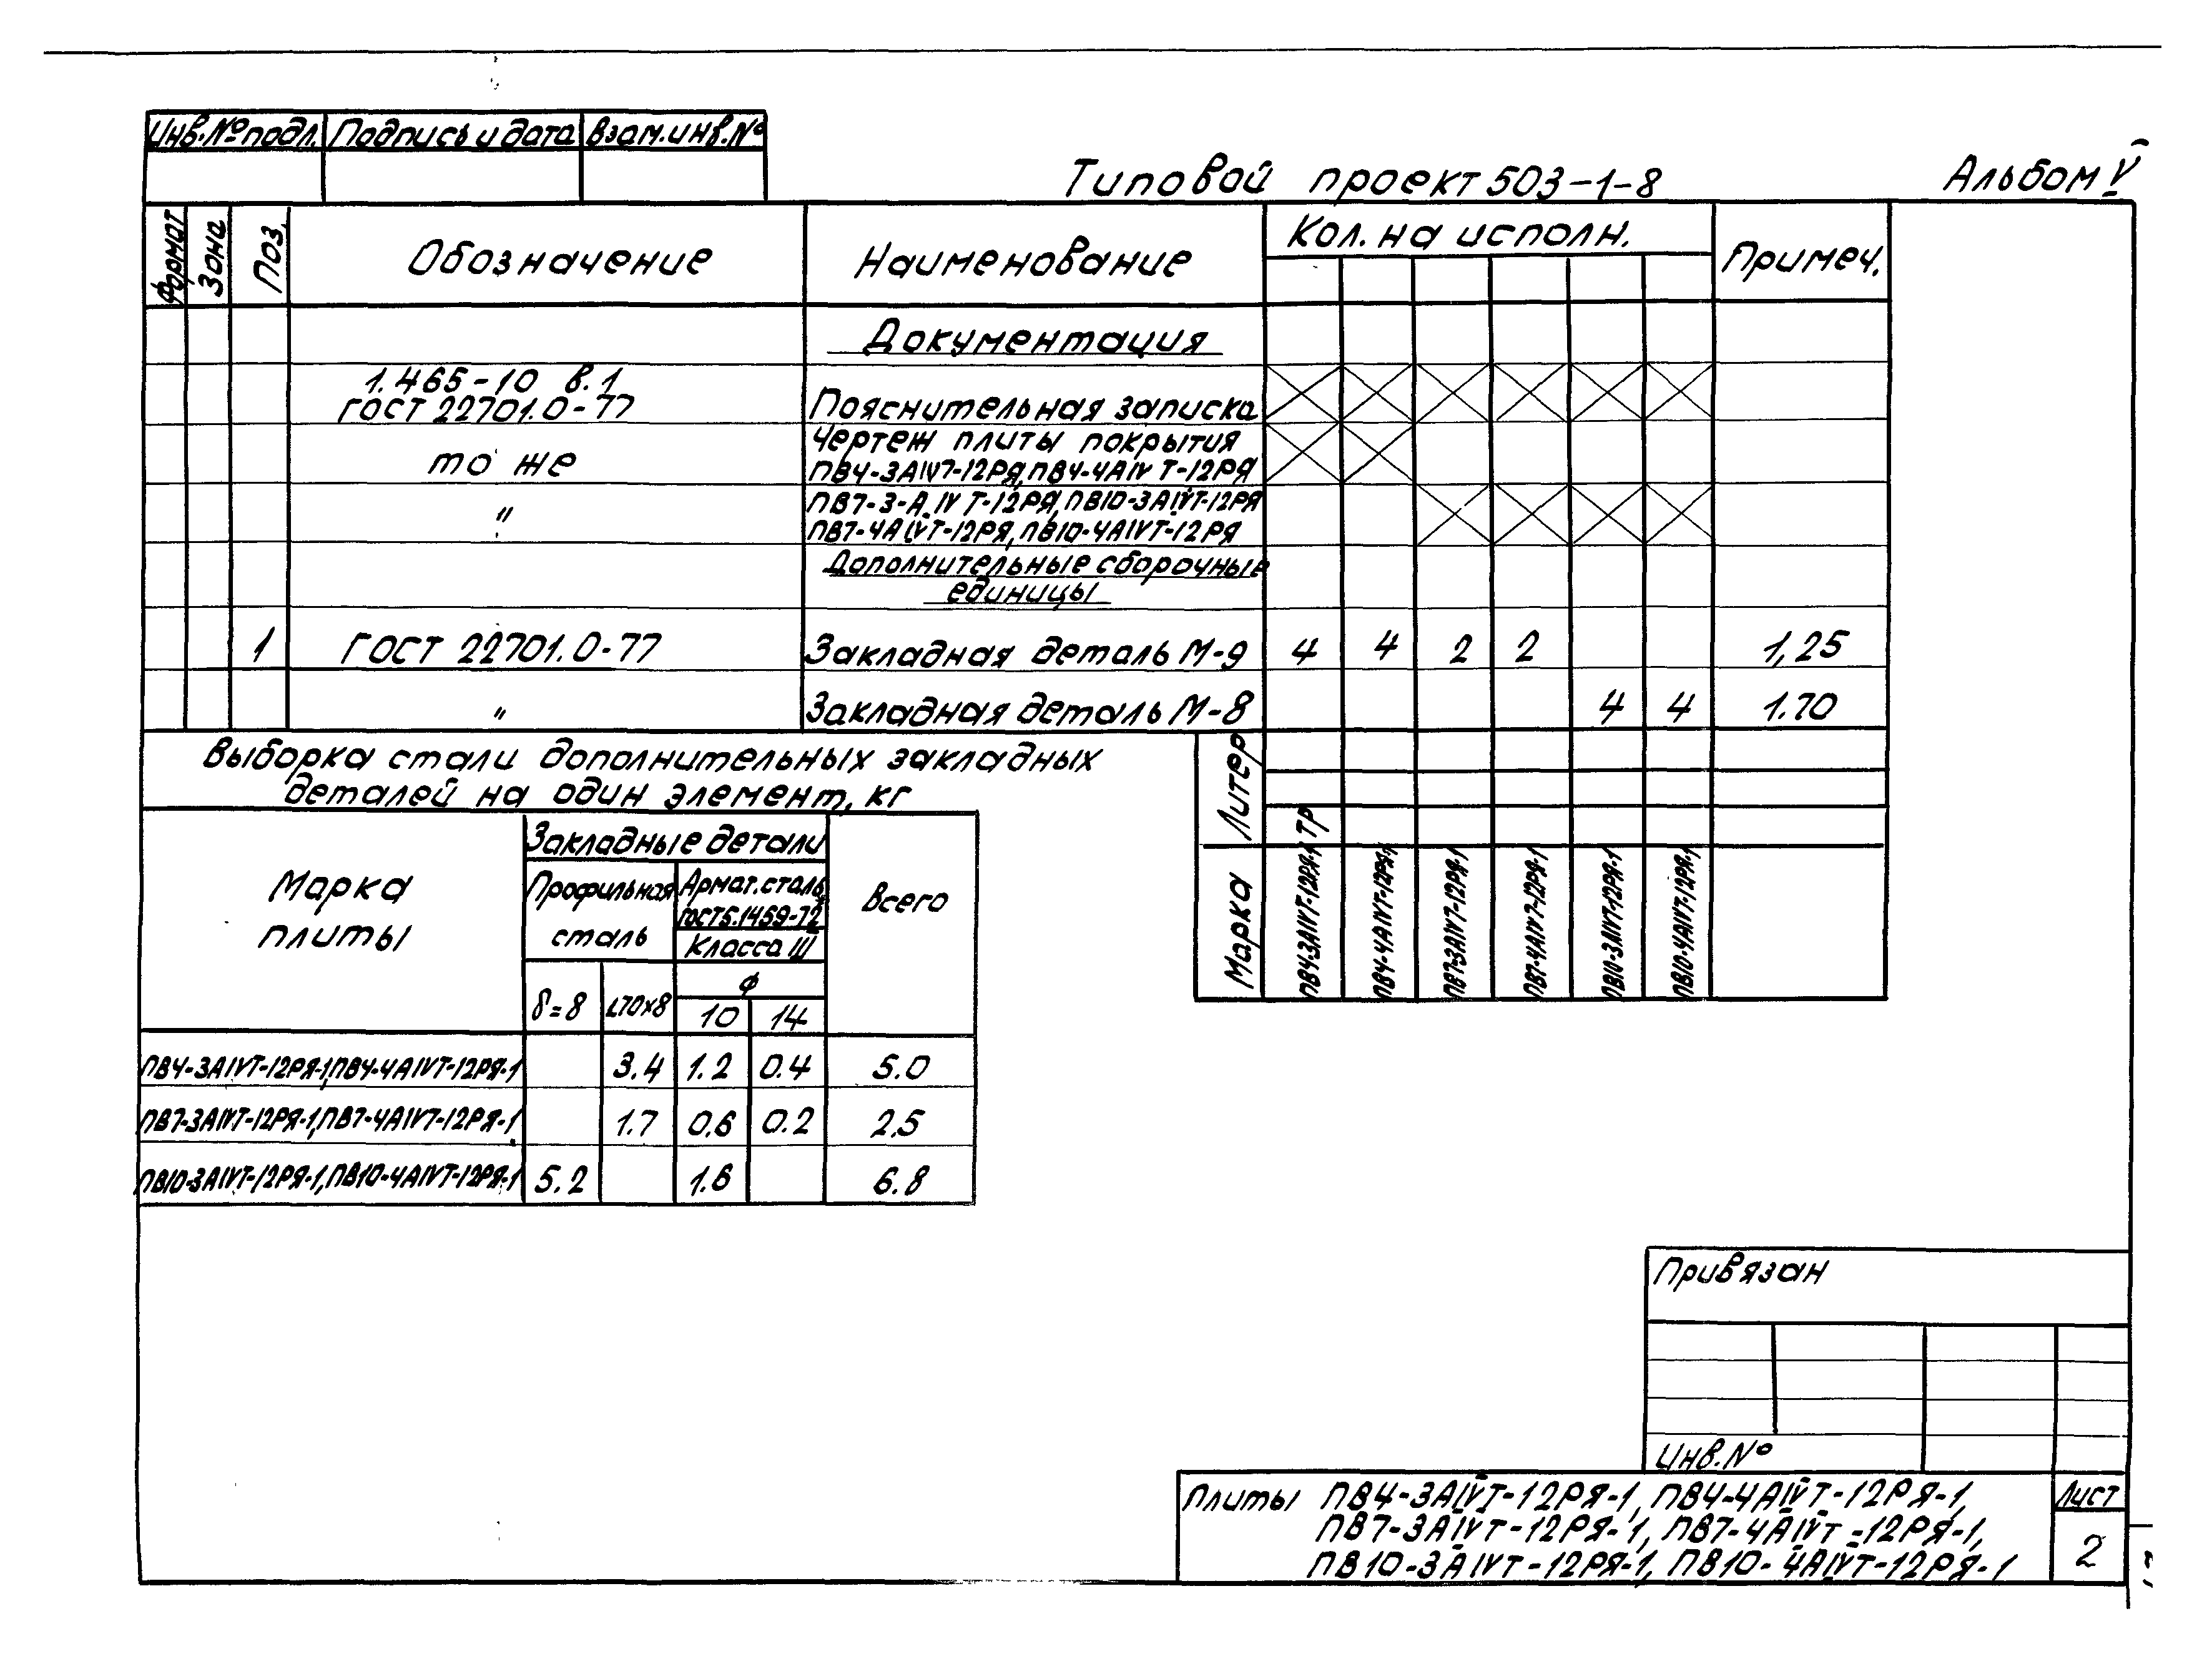 Инв.№ подл. Подпись и дата Взам.инв.№
Типовой проект 503-1-8 Альбом V
Формат Зона Поз. Обозначение Наименование Кол. на исполн. Примеч.
Документация
1.465-10 в.1
ГОСТ 22701.0-77 Пояснительная записка
Чертеж плиты покрытия
то же ПВ4-3АIVТ-12РЯ, ПВ4-4АIVТ-12РЯ
" ПВ7-3-АIVТ-12РЯ, ПВ10-3АIVТ-12РЯ
ПВ7-4АIVТ-12РЯ, ПВ10-4АIVТ-12РЯ
Дополнительные сборочные
единицы
1 ГОСТ 22701.0-77 Закладная деталь М-9 4 4 2 2 1,25
" Закладная деталь М-8 4 4 1.70
Литер ТР
Марка ПВ4-3АIVТ-12РЯ-1 ПВ4-4АIVТ-12РЯ-1 ПВ7-3АIVТ-12РЯ-1 ПВ7-4АIVТ-12РЯ-1 ПВ10-3АIVТ-12РЯ-1 ПВ10-4АIVТ-12РЯ-1
Выборка стали дополнительных закладных
деталей на один элемент, кг
Марка
плиты
Закладные детали
Профильная
сталь
Армат.сталь
ГОСТ5.1459-72
Класса III
Всего
δ=8 L70×8 ф
10 14
ПВ4-3АIVТ-12РЯ-1, ПВ4-4АIVТ-12РЯ-1 3.4 1.2 0.4 5.0
ПВ7-3АIVТ-12РЯ-1, ПВ7-4АIVТ-12РЯ-1 1.7 0.6 0.2 2.5
ПВ10-3АIVТ-12РЯ-1, ПВ10-4АIVТ-12РЯ-1 5.2 1.6 6.8
Привязан
Инв.№
Плиты ПВ4-3АIVТ-12РЯ-1, ПВ4-4АIVТ-12РЯ-1,
ПВ7-3АIVТ-12РЯ-1, ПВ7-4АIVТ-12РЯ-1,
ПВ10-3АIVТ-12РЯ-1, ПВ10-4АIVТ-12РЯ-1
Лист
2